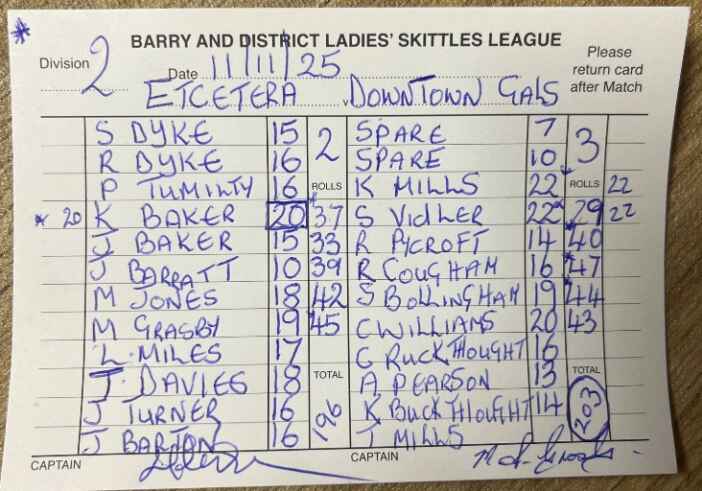 *
BARRY AND DISTRICT LADIES' SKITTLES LEAGUE
Division 2 Date 11/11/25 Please return card after Match
ETCETERA v DOWNTOWN GALS
S DYKE 15 2 SPARE 7 3
R DYKE 16 SPARE 10
P TUMILTY 16 ROLLS K MILLS 22 ROLLS 22
* 20 K BAKER 20 37 S VIDLER 22 29 22
J BAKER 15 33 R PYCROFT 14 40
J BARRATT 10 39 R COUGHAM 16 47
M JONES 18 42 S BOLLINGHAM 19 44
M GRASBY 19 45 C WILLIAMS 20 43
L. MILES 17 G RUCKTHOUGHT 16
J. DAVIES 18 TOTAL A PEARSON 13 TOTAL
J TURNER 16 196 K BUCKTHOUGHT 14 203
J BARTON 16 T MILLS
CAPTAIN CAPTAIN